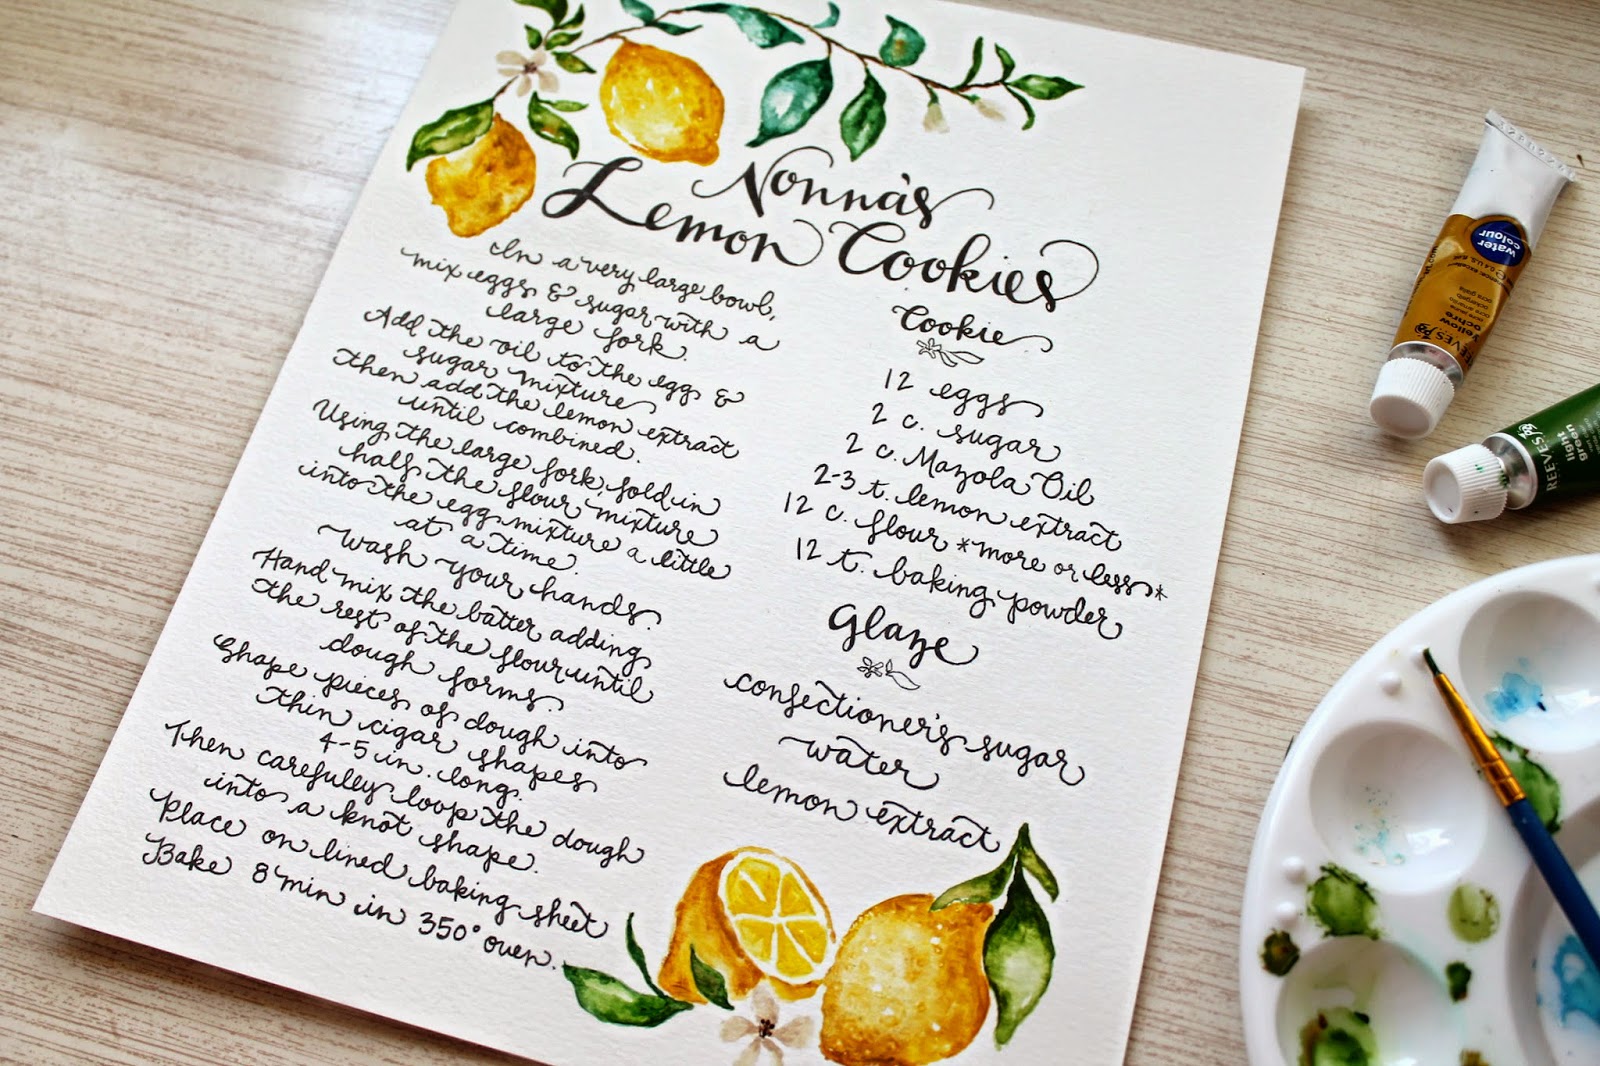 Nonna's
Lemon Cookies
In a very large bowl,
mix eggs & sugar with a
large fork.
Add the oil to the egg &
sugar mixture
then add the lemon extract
until combined.
Using the large fork, fold in
half the flour mixture
into the egg mixture a little
at a time.
Wash your hands.
Hand mix the batter adding
the rest of the flour until
dough forms.
Shape pieces of dough into
thin cigar shapes
4-5 in. long.
Then carefully loop the dough
into a knot shape.
Place on lined baking sheet
Bake 8 min in 350° oven.
Cookie
12 eggs
2 c. sugar
2 c. Mazola Oil
2-3 t. lemon extract
12 c. flour *more or less*
12 t. baking powder
Glaze
confectioner's sugar
water
lemon extract
water
colour
REEVES
yellow
ochre
REEVES
light
green